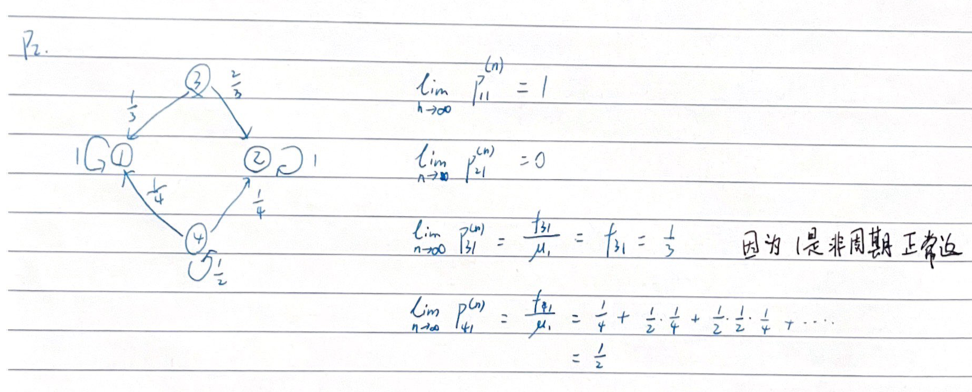 P2.
③
1/3
2/3
1 ① ② 1
1/4
1/4
④
1/2
lim_{n→∞} P_{11}^{(n)} = 1
lim_{n→∞} P_{21}^{(n)} = 0
lim_{n→∞} P_{31}^{(n)} = f_{31}/μ_1 = f_{31} = 1/3 因为1是非周期正常返
lim_{n→∞} P_{41}^{(n)} = f_{41}/μ_1 = 1/4 + 1/2·1/4 + 1/2·1/2·1/4 + ····
= 1/2